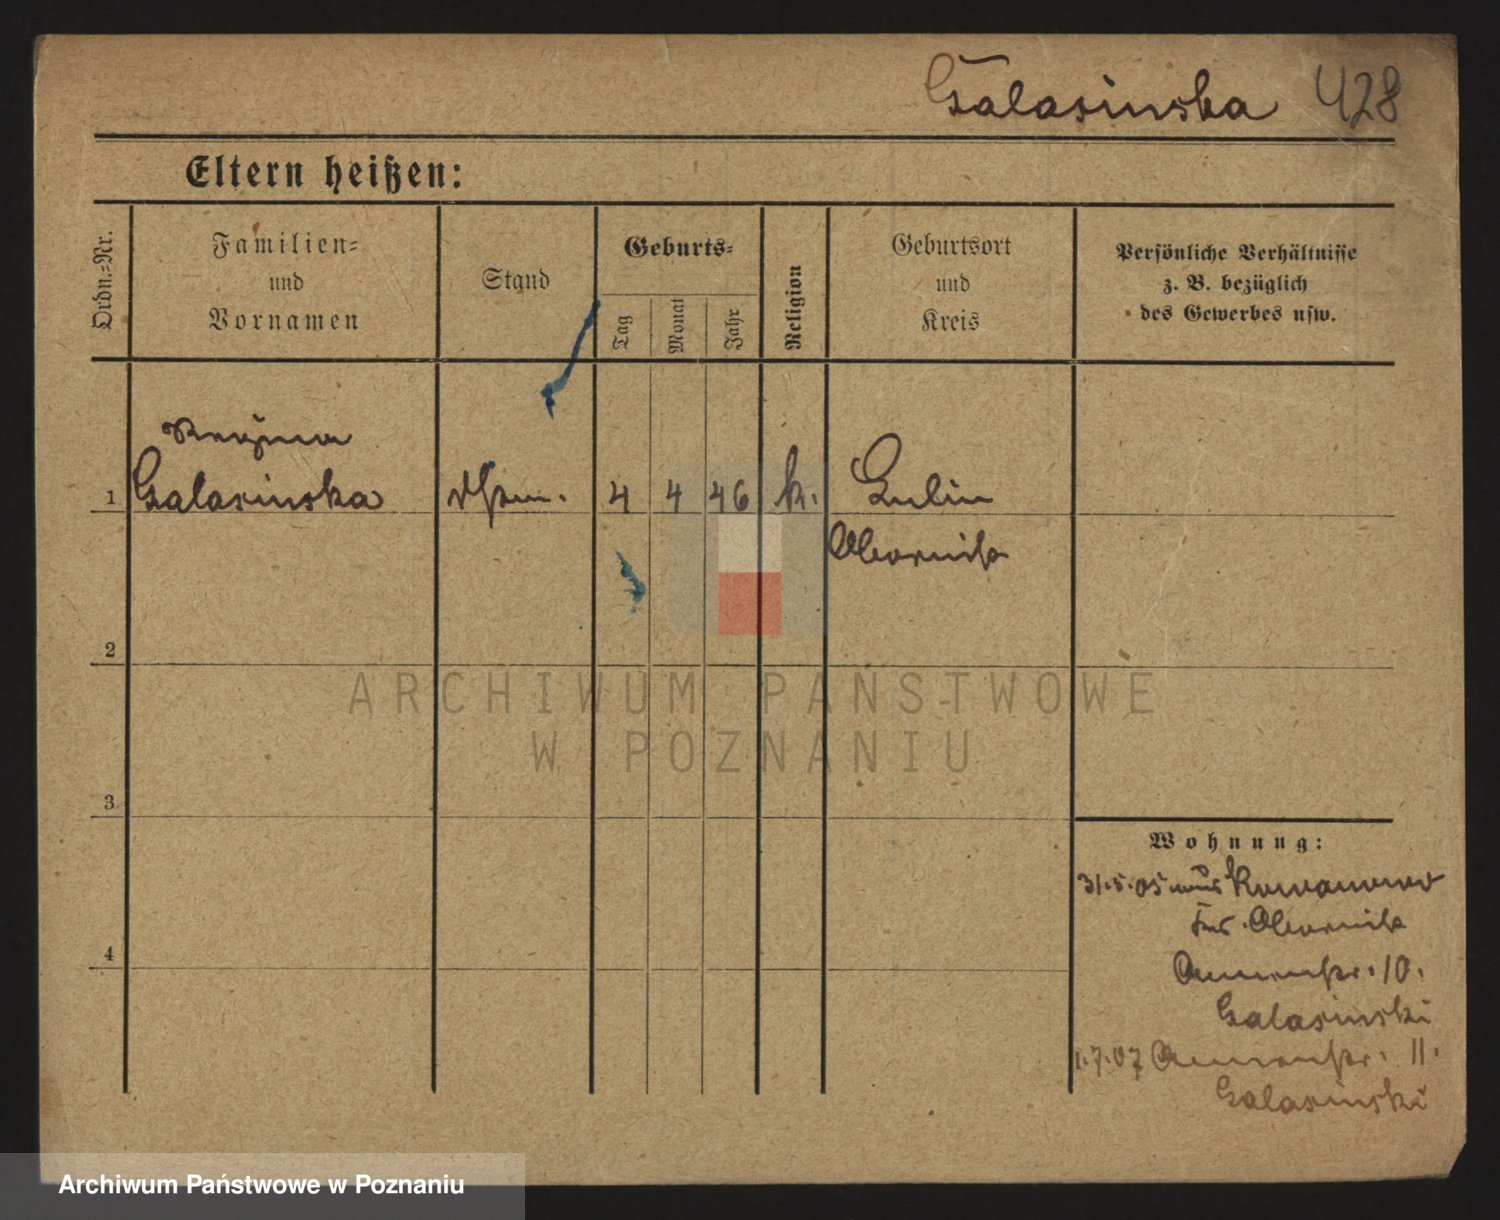 Galasinska 428
Eltern heißen:
Ordn.-Nr.
Familien-
und
Vornamen
Stand
Geburts-
Tag
Monat
Jahr
Religion
Geburtsort
und
Kreis
Persönliche Verhältnisse
z. B. bezüglich
des Gewerbes usw.
1
Galasinska
4 4 46 k.
Lulin
Obornik
2
3
4
Wohnung:
31.5.05 aus
Krs. Obornik
Annenstr. 10.
Galasinski
1.7.07 Annenstr. 11.
Galasinski
ARCHIWUM PAŃSTWOWE
W POZNANIU
Archiwum Państwowe w Poznaniu